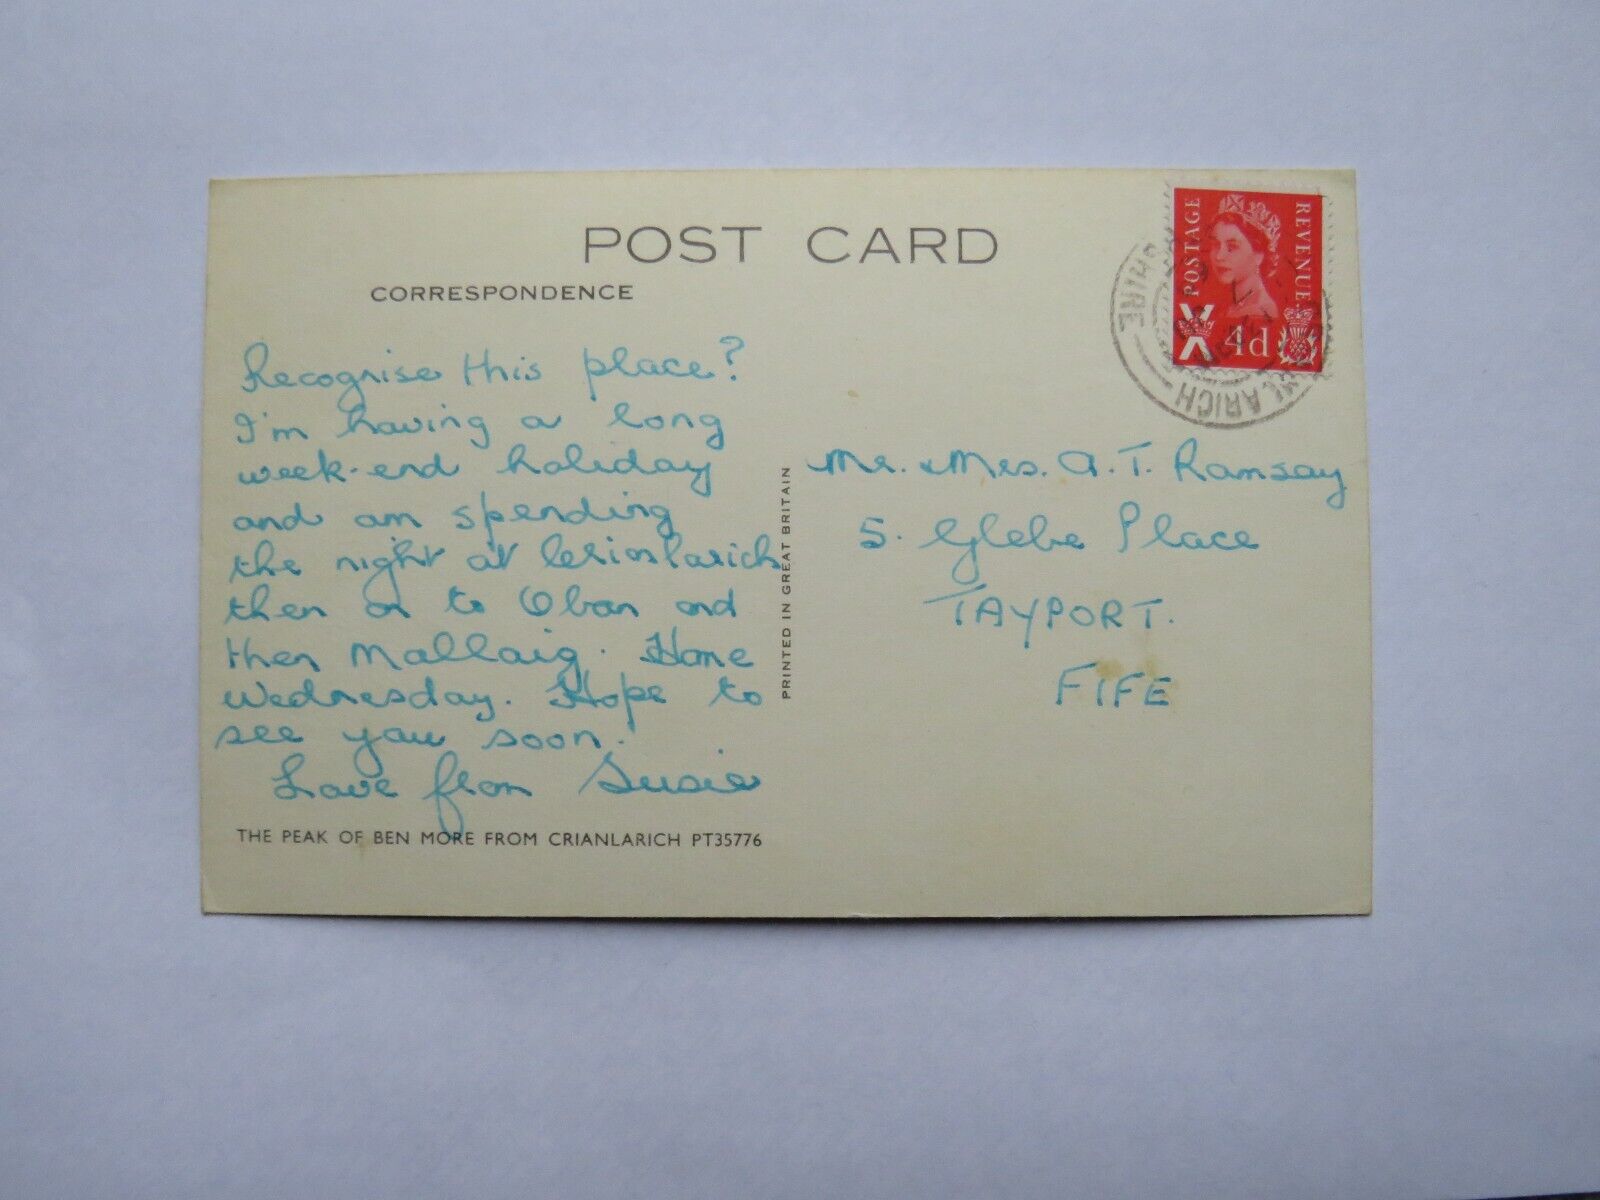 POST CARD
CORRESPONDENCE
Recognise this place?
I'm having a long
week-end holiday
and am spending
the night at Crianlarich
then on to Oban and
then Mallaig. Home
Wednesday. Hope to
see you soon.
Love from Susie
THE PEAK OF BEN MORE FROM CRIANLARICH PT35776
PRINTED IN GREAT BRITAIN
POSTAGE
REVENUE
4d
SHIRE
LARICH
Mr. & Mrs. A.T. Ramsay
5. Glebe Place
TAYPORT.
FIFE